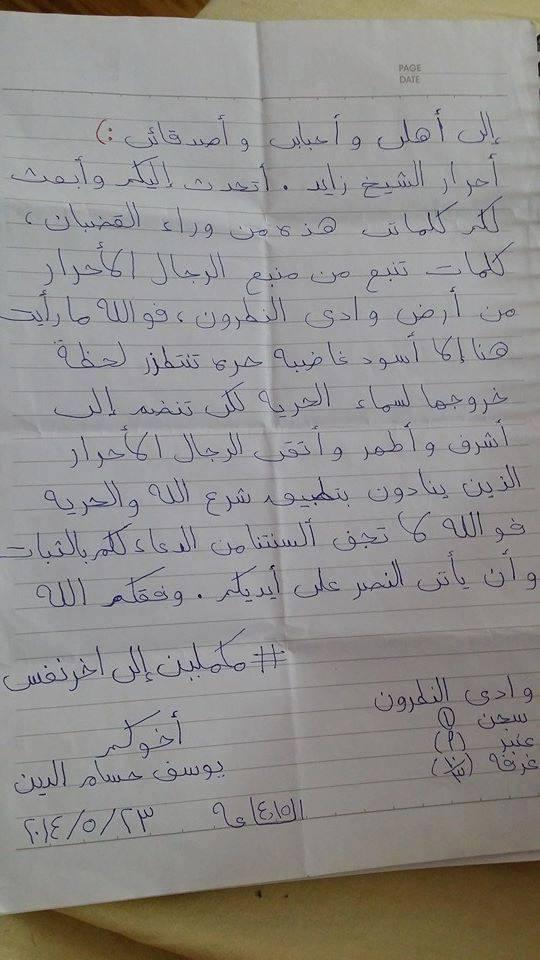 PAGE
DATE
إلى أهلى و أحبابى و أصدقائى :)
أحرار الشيخ زايد . أتحدث إليكم وأبعث
لكم كلماتى هذه من وراء القضبان ،
كلمات تنبع من منبع الرجال الأحرار
من أرض وادى النطرون ، فو الله ما رأيت
هنا إلا أسود غاضبه حره تنتظر لحظة
خروجها لسماء الحريه لكى تنضم إلى
أشرف وأطهر وأتقى الرجال الأحرار
الذين ينادون بتطبيق شرع الله والحريه
فو الله لا تجف ألسنتنا من الدعاء لكم بالثبات
وأن يأتى النصر على أيديكم . وفقكم الله
# مكملين إلى اخر نفس
وادى النطرون
سجن ١
عنبر (٢)
غرفه
أخوكم
يوسف حسام الدين
٢٠١٤/٥/٢٣